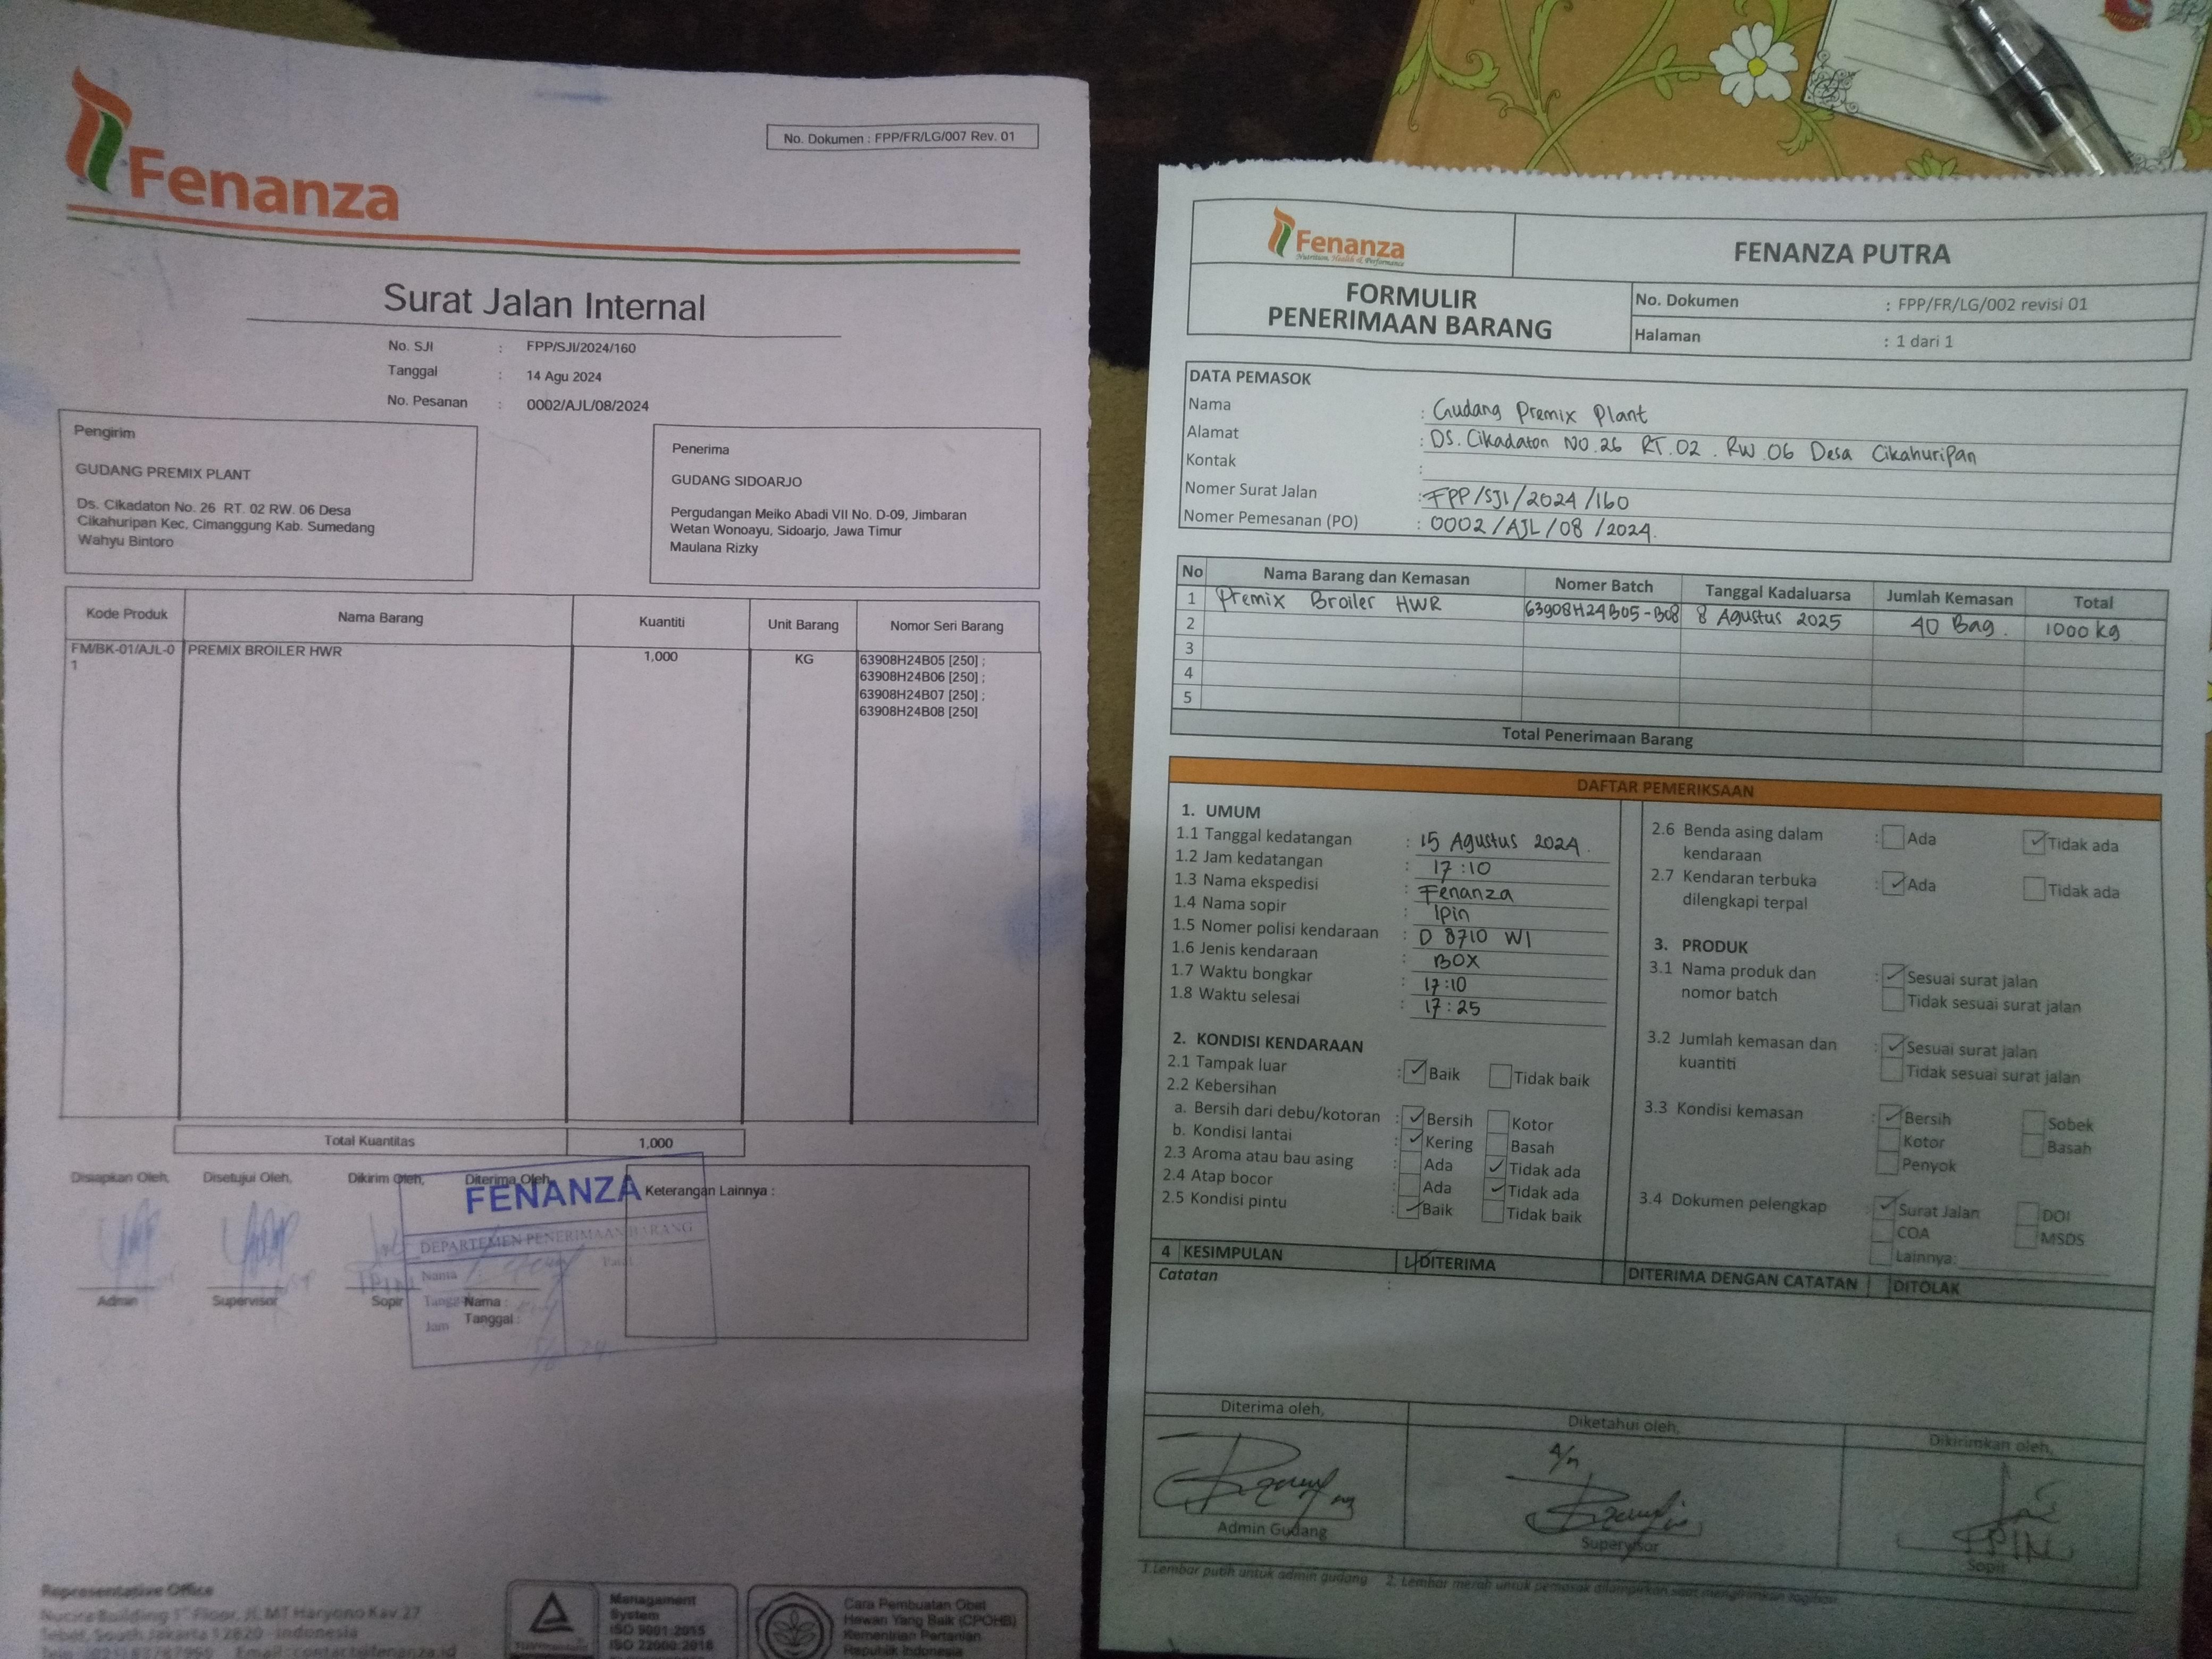 Fenanza
No. Dokumen : FPP/FR/LG/007 Rev. 01
Surat Jalan Internal
No. SJI : FPP/SJI/2024/160
Tanggal : 14 Agu 2024
No. Pesanan : 0002/AJL/08/2024
Pengirim
GUDANG PREMIX PLANT
Ds. Cikadaton No. 26 RT. 02 RW. 06 Desa
Cikahuripan Kec, Cimanggung Kab. Sumedang
Wahyu Bintoro
Penerima
GUDANG SIDOARJO
Pergudangan Meiko Abadi VII No. D-09, Jimbaran
Wetan Wonoayu, Sidoarjo, Jawa Timur
Maulana Rizky
Kode Produk Nama Barang Kuantiti Unit Barang Nomor Seri Barang
FM/BK-01/AJL-0 PREMIX BROILER HWR 1,000 KG 63908H24B05 [250] ;
1 63908H24B06 [250] ;
63908H24B07 [250] ;
63908H24B08 [250]
Total Kuantitas 1,000
Disiapkan Oleh, Disetujui Oleh, Dikirim Oleh, Diterima Oleh,
Keterangan Lainnya :
FENANZA
DEPARTEMEN PENERIMAAN BARANG
Nama Paraf
Jam
IPIN
Admin Supervisor Sopir Nama :
Tanggal :
Representative Office
Floor, Jl. MT Haryono Kav 27
Tebet, South Jakarta 12820 - Indonesia
Management
System
ISO 9001:2015
ISO 22000:2018
Cara Pembuatan Obat
Hewan Yang Baik (CPOHB)
Kementrian Pertanian
Republik Indonesia
Fenanza
Nutrition, Health & Performance
FENANZA PUTRA
FORMULIR
PENERIMAAN BARANG
No. Dokumen : FPP/FR/LG/002 revisi 01
Halaman : 1 dari 1
DATA PEMASOK
Nama : Gudang Premix Plant
Alamat : DS. Cikadaton NO.26 RT.02 . RW.06 Desa Cikahuripan
Kontak :
Nomer Surat Jalan : FPP/SJI/2024/160
Nomer Pemesanan (PO) : 0002/AJL/08/2024.
No Nama Barang dan Kemasan Nomer Batch Tanggal Kadaluarsa Jumlah Kemasan Total
1 Premix Broiler HWR 63908H24B05-B08 8 Agustus 2025 40 Bag. 1000 kg
2
3
4
5
Total Penerimaan Barang
DAFTAR PEMERIKSAAN
1. UMUM
1.1 Tanggal kedatangan : 15 Agustus 2024.
1.2 Jam kedatangan : 17:10
1.3 Nama ekspedisi : Fenanza
1.4 Nama sopir : Ipin
1.5 Nomer polisi kendaraan : D 8710 WI
1.6 Jenis kendaraan : BOX
1.7 Waktu bongkar : 17:10
1.8 Waktu selesai : 17:25
2. KONDISI KENDARAAN
2.1 Tampak luar : ✓ Baik Tidak baik
2.2 Kebersihan
a. Bersih dari debu/kotoran : ✓ Bersih Kotor
b. Kondisi lantai : ✓ Kering Basah
2.3 Aroma atau bau asing : Ada ✓ Tidak ada
2.4 Atap bocor : Ada ✓ Tidak ada
2.5 Kondisi pintu : ✓ Baik Tidak baik
2.6 Benda asing dalam : Ada ✓ Tidak ada
kendaraan
2.7 Kendaran terbuka : ✓ Ada Tidak ada
dilengkapi terpal
3. PRODUK
3.1 Nama produk dan : ✓ Sesuai surat jalan
nomor batch Tidak sesuai surat jalan
3.2 Jumlah kemasan dan : ✓ Sesuai surat jalan
kuantiti Tidak sesuai surat jalan
3.3 Kondisi kemasan : ✓ Bersih Sobek
Kotor Basah
Penyok
3.4 Dokumen pelengkap : ✓ Surat Jalan DOI
COA MSDS
Lainnya:
4 KESIMPULAN ✓ DITERIMA DITERIMA DENGAN CATATAN DITOLAK
Catatan :
Diterima oleh, Diketahui oleh, Dikirimkan oleh,
A/n
IPIN
Admin Gudang Supervisor Sopir
1.Lembar putih untuk admin gudang 2. Lembar merah untuk pemasok dilampirkan saat mengirimkan tagihan